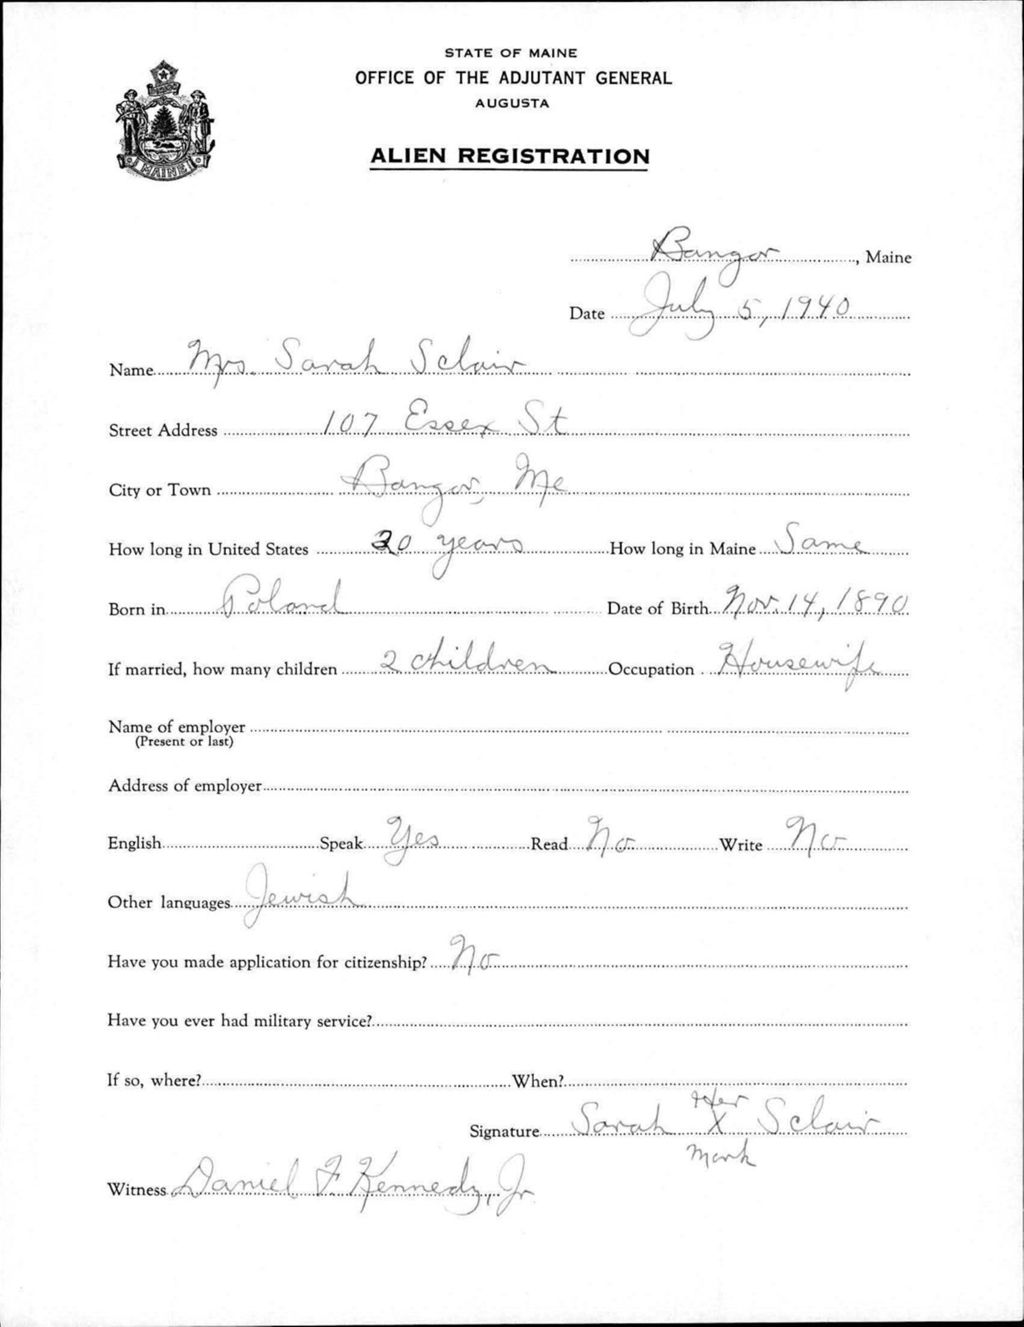 STATE OF MAINE
OFFICE OF THE ADJUTANT GENERAL
AUGUSTA
ALIEN REGISTRATION
MAINE
Bangor, Maine
Date July 5, 1940
Name Mrs. Sarah Sclair
Street Address 107 Essex St
City or Town Bangor, Me
How long in United States 20 years How long in Maine Same
Born in Poland Date of Birth Nov. 14, 1890
If married, how many children 2 children Occupation Housewife
Name of employer
(Present or last)
Address of employer
English Speak Yes Read No Write No
Other languages Jewish
Have you made application for citizenship? No
Have you ever had military service?
If so, where? When?
Her
Signature Sarah X Sclair
Mark
Witness Daniel F. Kennedy, Jr